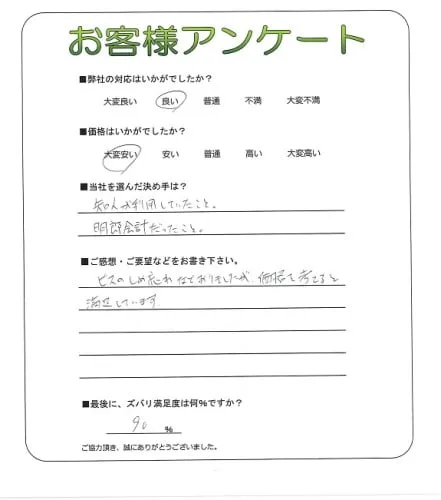 お客様アンケート
■弊社の対応はいかがでしたか？
大変良い 良い 普通 不満 大変不満
■価格はいかがでしたか？
大変安い 安い 普通 高い 大変高い
■当社を選んだ決め手は？
知人が利用していたこと。
明朗会計だったこと。
■ご感想・ご要望などをお書き下さい。
ビスのしめ忘れなどありましたが、価格で考えると
満足しています
■最後に、ズバリ満足度は何％ですか？
90 ％
ご協力頂き、誠にありがとうございました。